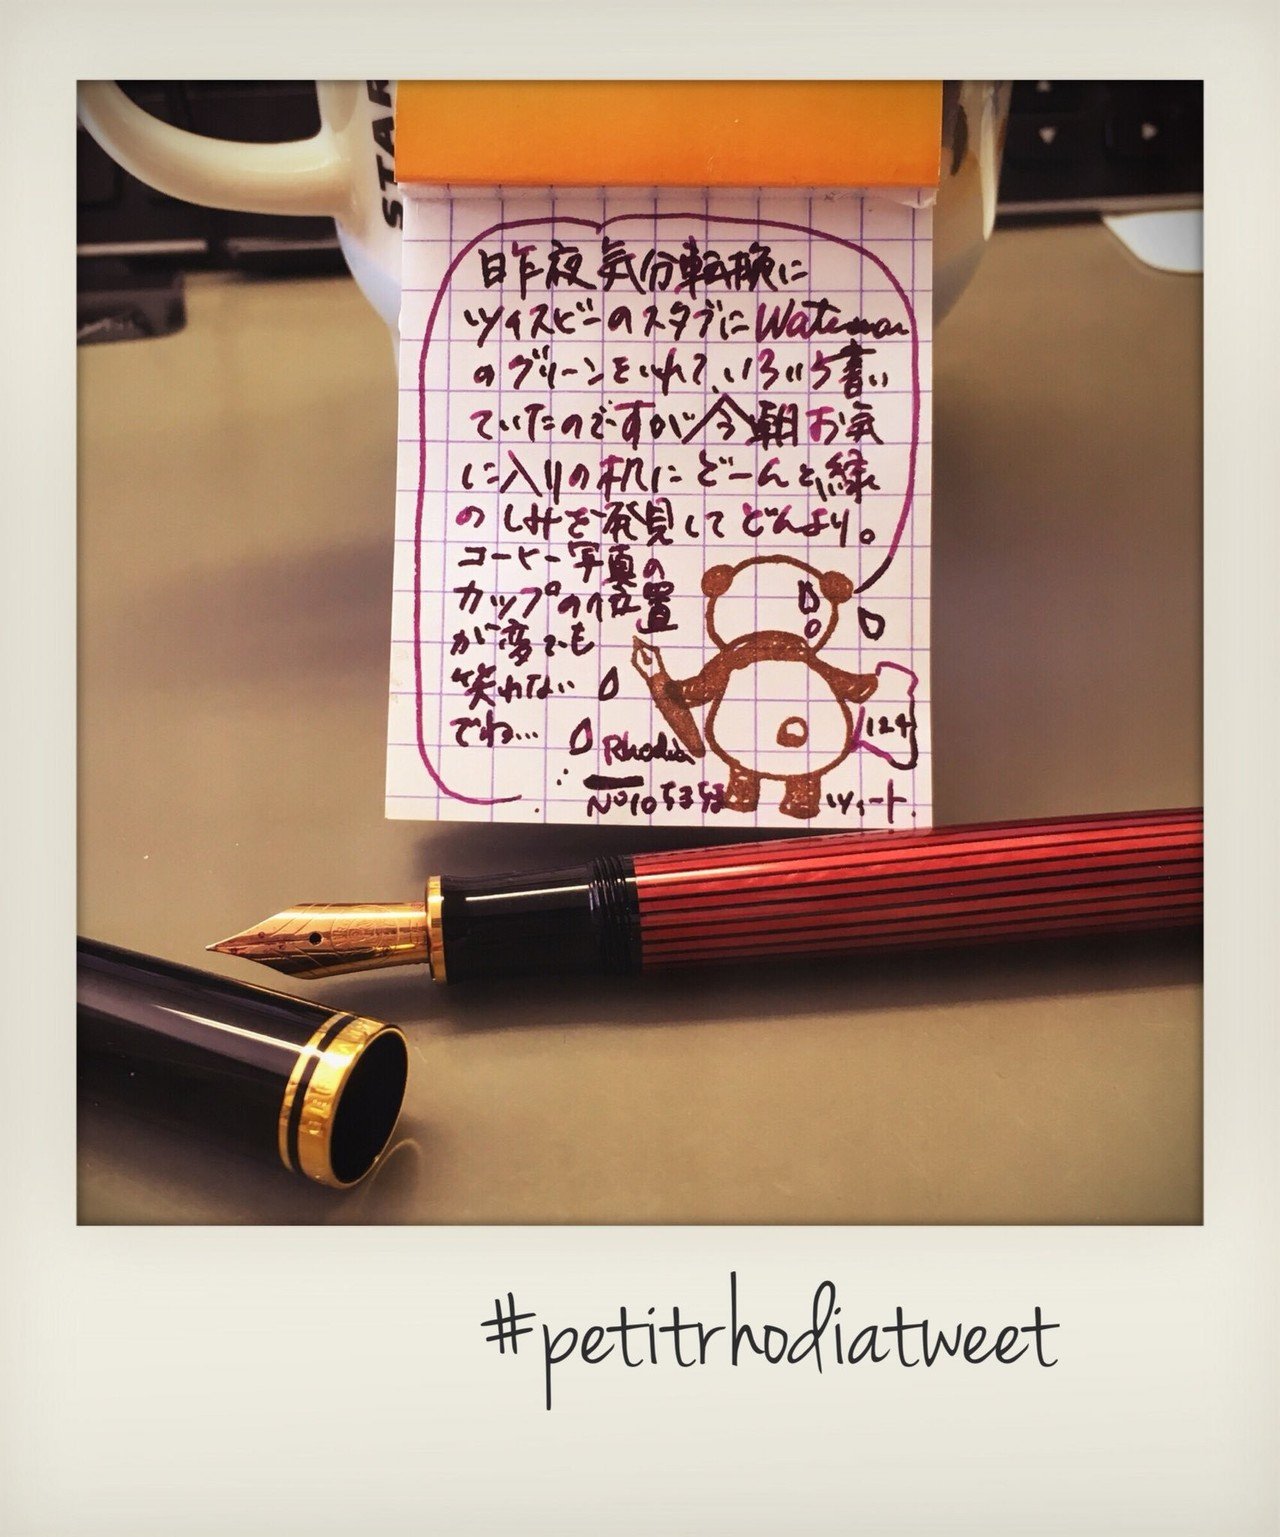 STAR
昨夜気分転換に
ツイスビーのスタブにWaterman
のグリーンをいれて、いろいろ書い
ていたのですが今朝お気
に入りの机にどーんと緑
のしみを発見してどんより。
コーヒー写真の
カップの位置
が変でも
笑れない
でね...
Rhodia
No10ちまちま
ツイート
124
#petitrhodiatweet